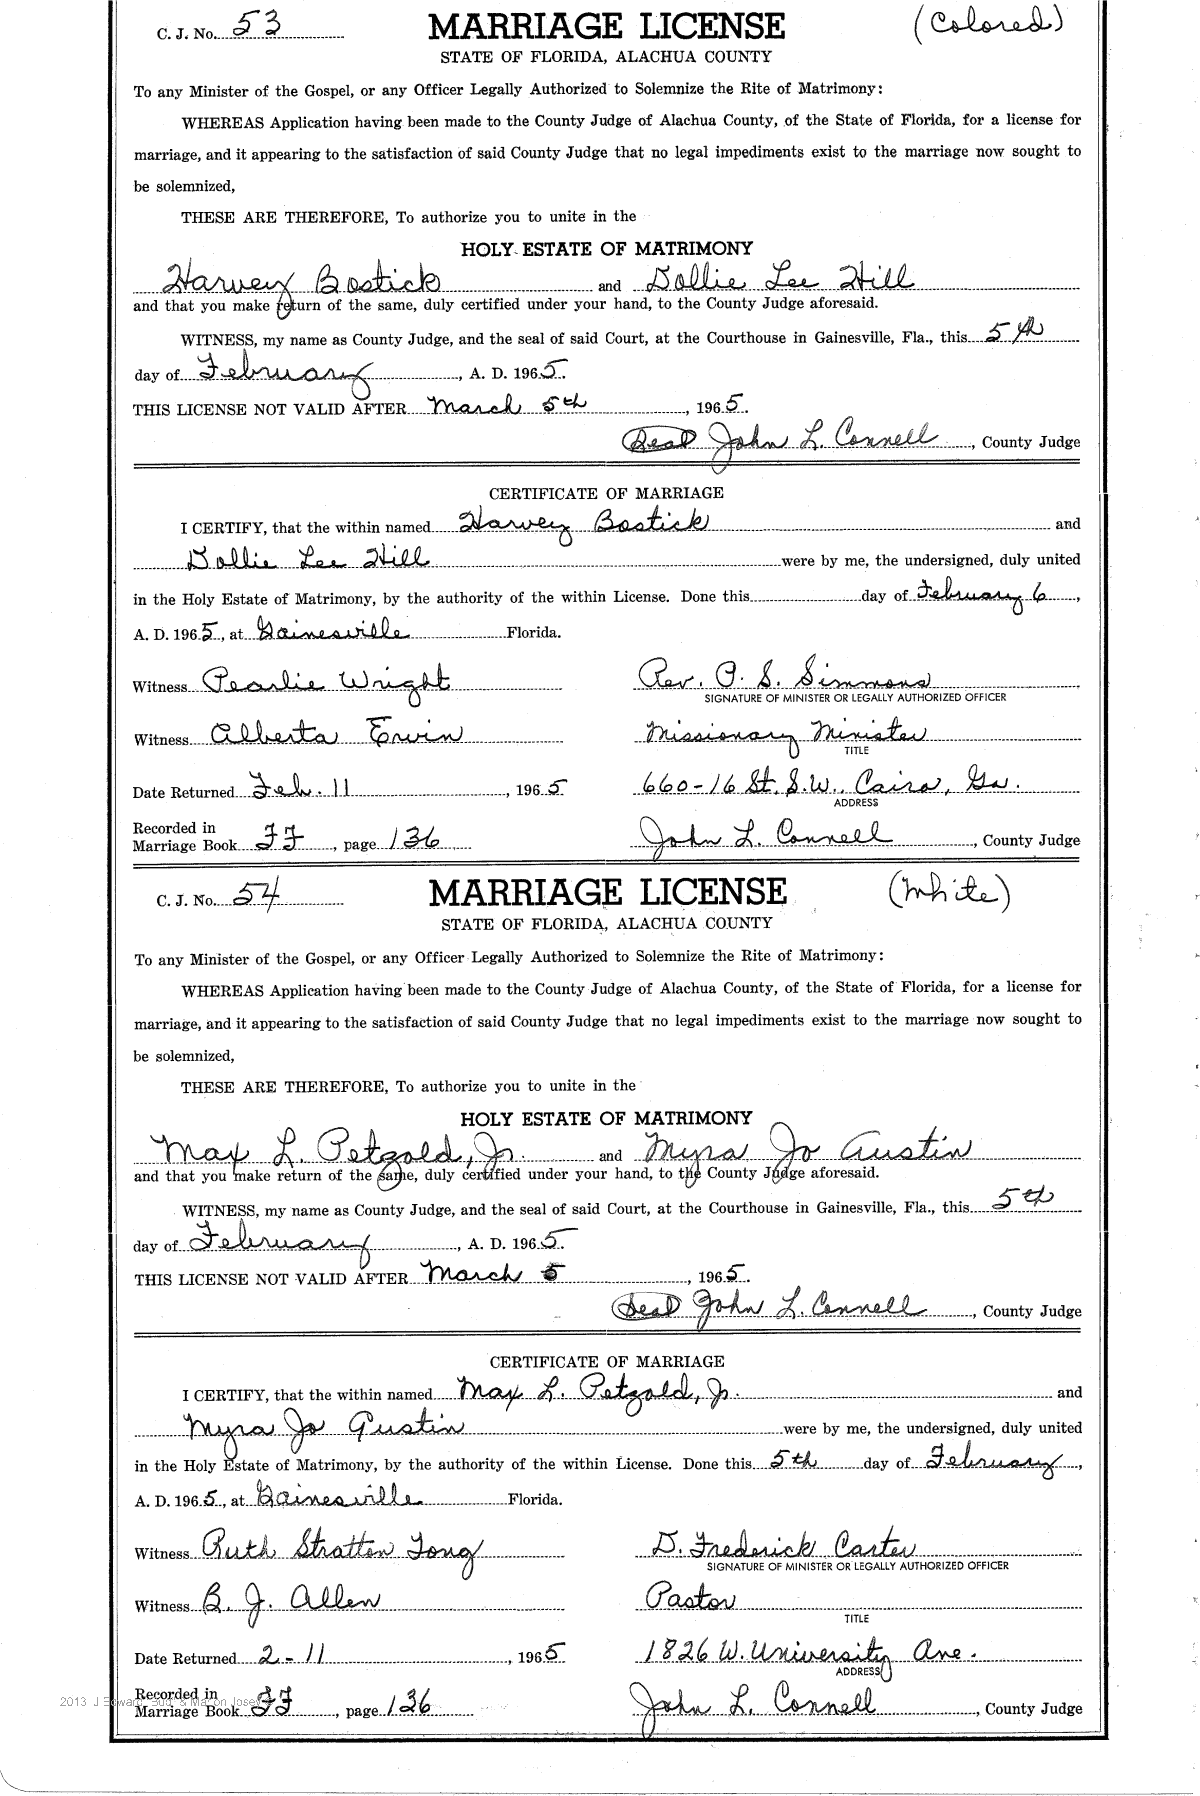 C. J. No. 53 MARRIAGE LICENSE (Colored)
STATE OF FLORIDA, ALACHUA COUNTY
To any Minister of the Gospel, or any Officer Legally Authorized to Solemnize the Rite of Matrimony:
WHEREAS Application having been made to the County Judge of Alachua County, of the State of Florida, for a license for
marriage, and it appearing to the satisfaction of said County Judge that no legal impediments exist to the marriage now sought to
be solemnized,
THESE ARE THEREFORE, To authorize you to unite in the
HOLY ESTATE OF MATRIMONY
Harvey Bostick and Dollie Lee Hill
and that you make return of the same, duly certified under your hand, to the County Judge aforesaid.
WITNESS, my name as County Judge, and the seal of said Court, at the Courthouse in Gainesville, Fla., this 5th
day of February, A. D. 1965.
THIS LICENSE NOT VALID AFTER March 5th, 1965.
Seal John L. Connell, County Judge
CERTIFICATE OF MARRIAGE
I CERTIFY, that the within named Harvey Bostick and
Dollie Lee Hill were by me, the undersigned, duly united
in the Holy Estate of Matrimony, by the authority of the within License. Done this day of February 6,
A. D. 1965, at Gainesville Florida.
Witness Pearlie Wright Rev. P. S. Simmons
SIGNATURE OF MINISTER OR LEGALLY AUTHORIZED OFFICER
Witness Alberta Erwin Missionary Minister
TITLE
Date Returned Feb. 11, 1965 660-16 St. S.W., Cairo, Ga.
ADDRESS
Recorded in
Marriage Book FF, page 136 John L. Connell, County Judge
C. J. No. 54 MARRIAGE LICENSE (White)
STATE OF FLORIDA, ALACHUA COUNTY
To any Minister of the Gospel, or any Officer Legally Authorized to Solemnize the Rite of Matrimony:
WHEREAS Application having been made to the County Judge of Alachua County, of the State of Florida, for a license for
marriage, and it appearing to the satisfaction of said County Judge that no legal impediments exist to the marriage now sought to
be solemnized,
THESE ARE THEREFORE, To authorize you to unite in the
HOLY ESTATE OF MATRIMONY
Max L. Petzold, Jr. and Myra Jo Austin
and that you make return of the same, duly certified under your hand, to the County Judge aforesaid.
WITNESS, my name as County Judge, and the seal of said Court, at the Courthouse in Gainesville, Fla., this 5th
day of February, A. D. 1965.
THIS LICENSE NOT VALID AFTER March 5, 1965.
Seal John L. Connell, County Judge
CERTIFICATE OF MARRIAGE
I CERTIFY, that the within named Max L. Petzold, Jr. and
Myra Jo Austin were by me, the undersigned, duly united
in the Holy Estate of Matrimony, by the authority of the within License. Done this 5th day of February,
A. D. 1965, at Gainesville Florida.
Witness Ruth Stratten Tong D. Frederick Carter
SIGNATURE OF MINISTER OR LEGALLY AUTHORIZED OFFICER
Witness B. J. Allen Pastor
TITLE
Date Returned 2-11, 1965 1826 W. University Ave.
ADDRESS
Recorded in
Marriage Book FF, page 136 John L. Connell, County Judge
2013 J